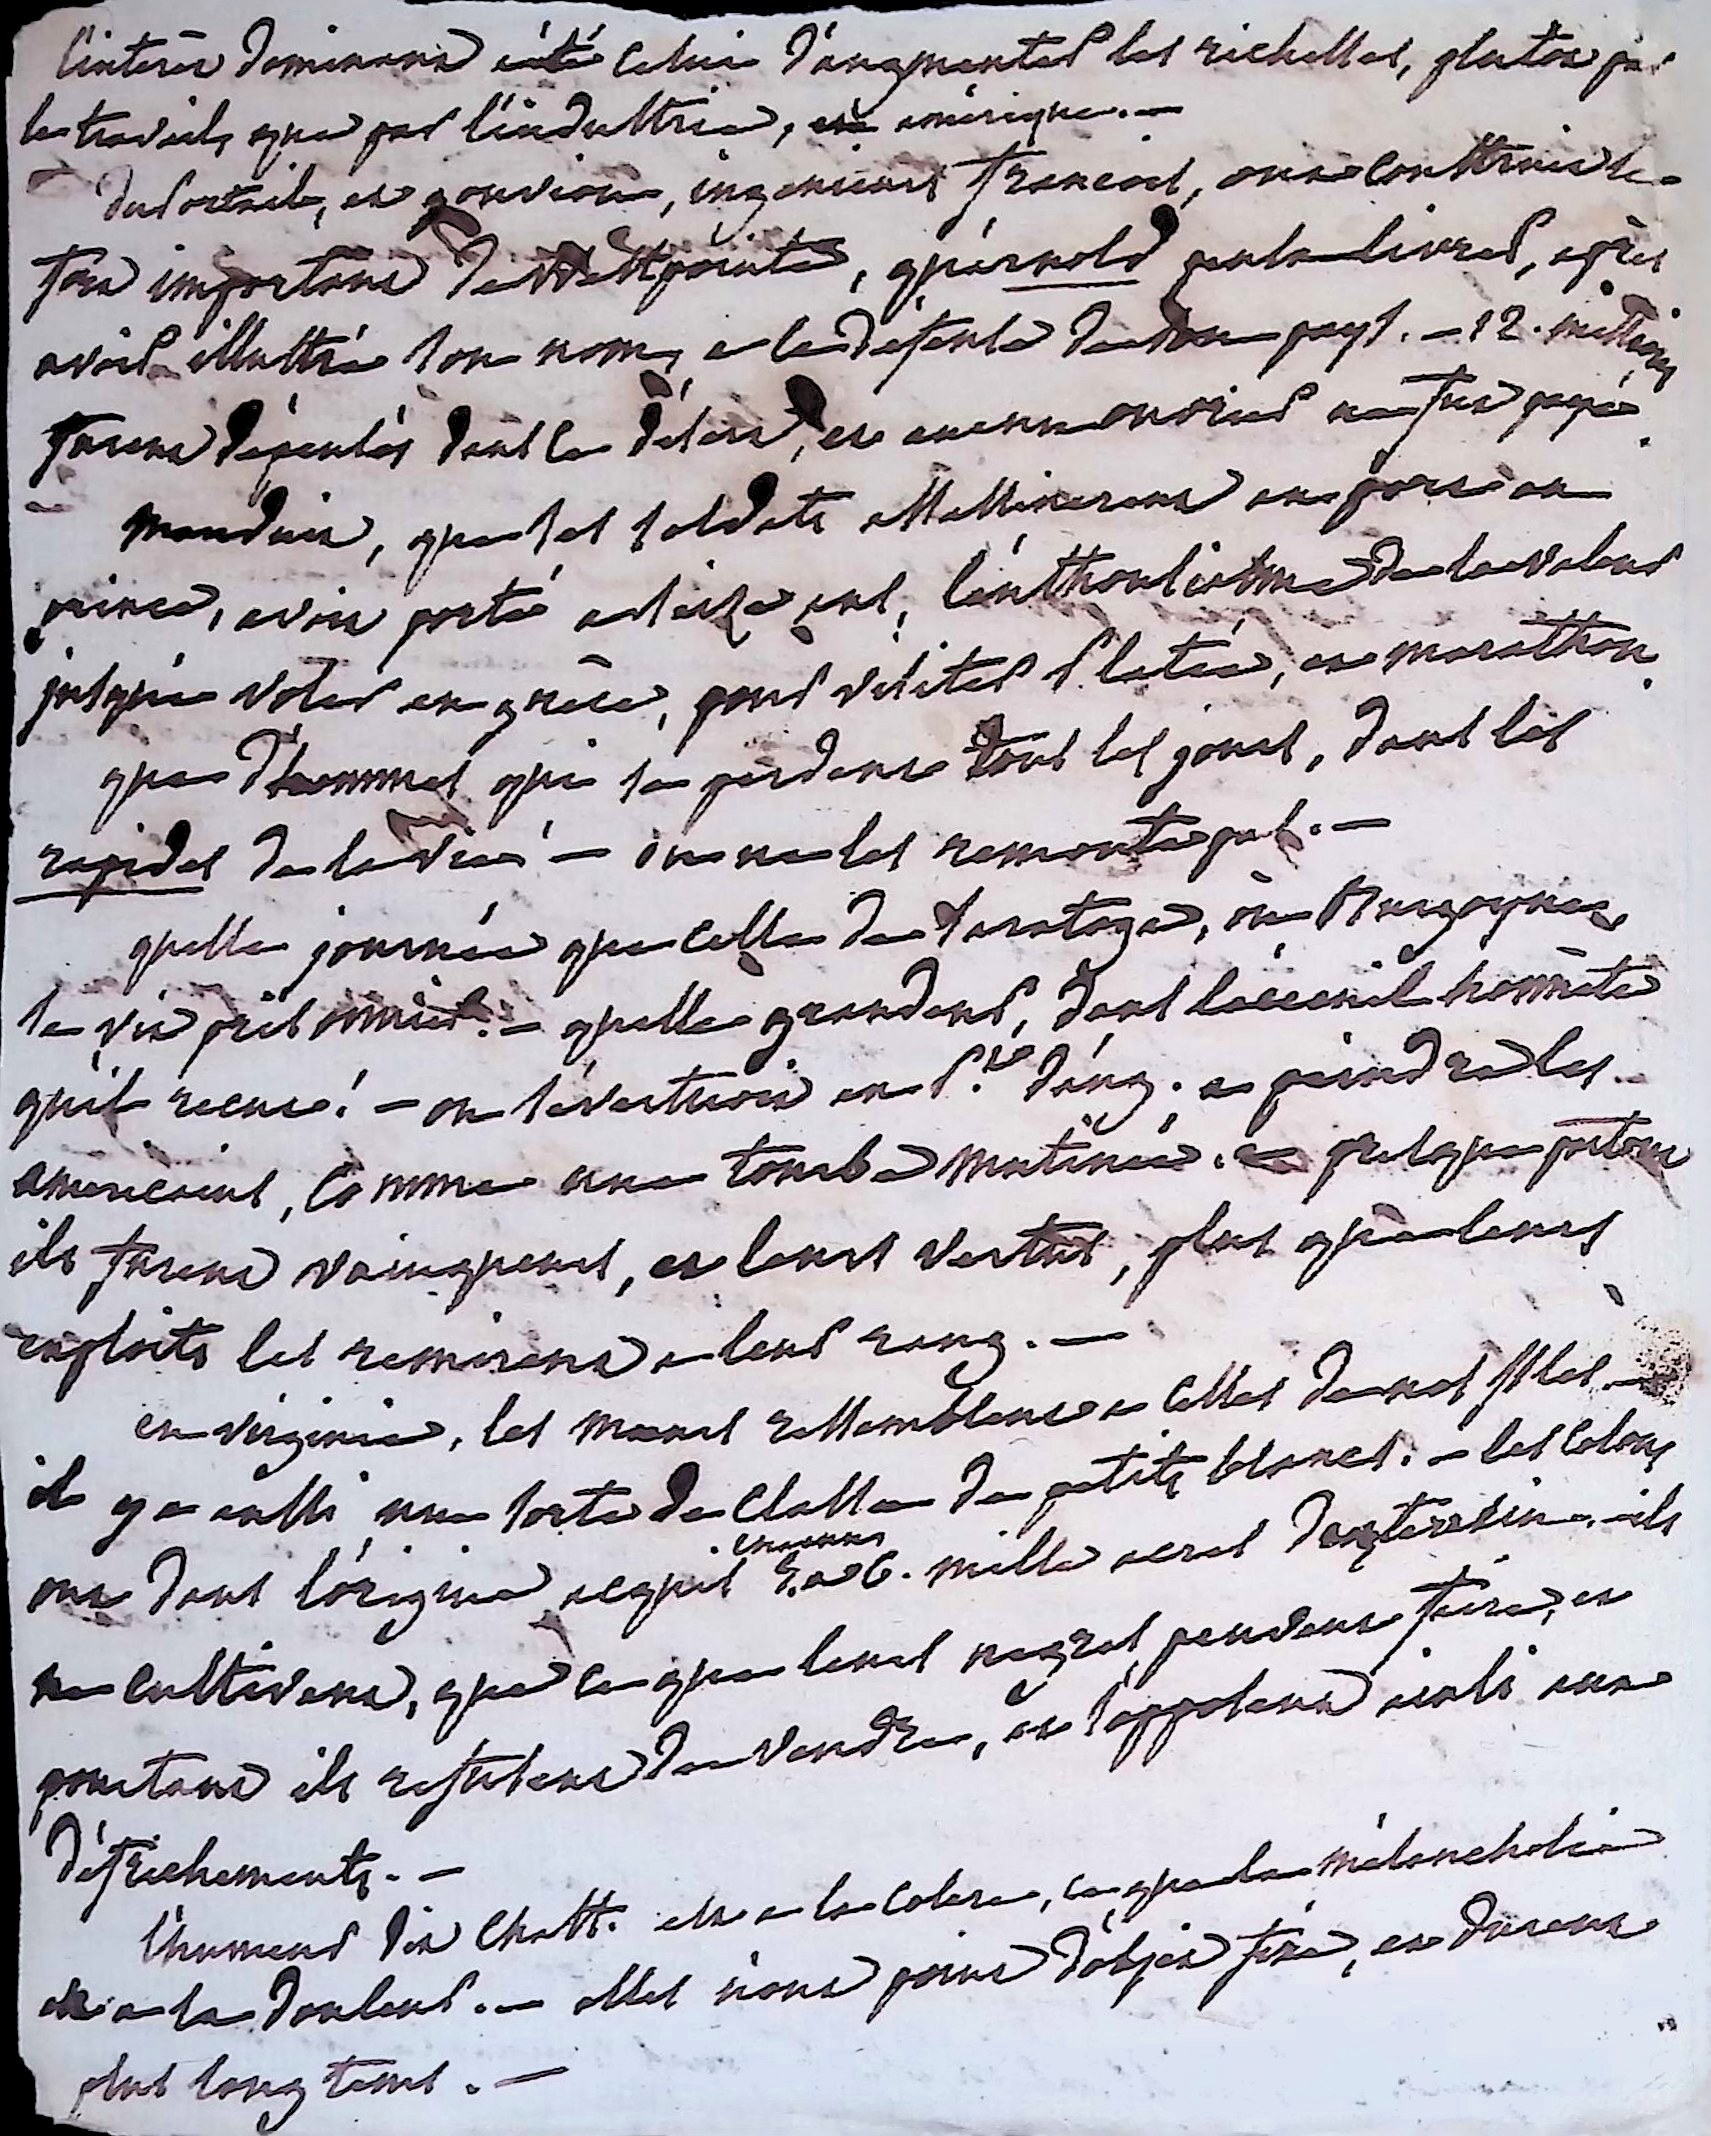 l'intérêt dominant a été celui d'augmenter les richesses, plutôt par
le travail, que par l'industrie, en amérique. —
duportail, et gouvion, ingenieurs francais, ont construit le
fort important de Westpointe, qu'arnold voulut livrer, après
avoir illustré son nom, a la défense de son pays. — 12. millions
furent dépensés dans ce désert, et aucun ouvrier ne fut payé.
Mauduit, que ses soldats assassinerent au port au
prince, avoit porté a seize ans, l'enthousiasme de la valeur
jusqu'a voler en grèce, pour visiter Platée, et marathon.
que d'hommes qui se perdent tous les jours, dans les
rapides de la vie ! — on ne les remonte pas. —
quelle journée que celle de Saratoga, où Burgoyne
se vit prisonnier. — quelle grandeur, dans l'accueil honnête
qu'il recut ! — on s'évertuoit en P.re d'ang. a peindre les
américains, comme une tourbe mutinée. presque partout
ils furent vainqueurs, et leurs vertus, plus que leurs
exploits les remirent a leur rang. —
en virginie, les moeurs ressemblent a celles de nos isles —
il y a aussi une sorte de classe de petits blancs. — les colons
ont dans l'origine acquis 5. a 6. mille acres de terrein. — ils
ne cultivent, que ce que leurs negres peuvent faire, et
pourtant ils refusent de vendre, et s'opposent ainsi aux
défrichements. —
l'humeur dit Chast. est a la colere, ce que la mélancholie
est a la douleur. — elles n'ont point d'objet fixe, et durent
plus long tems. —